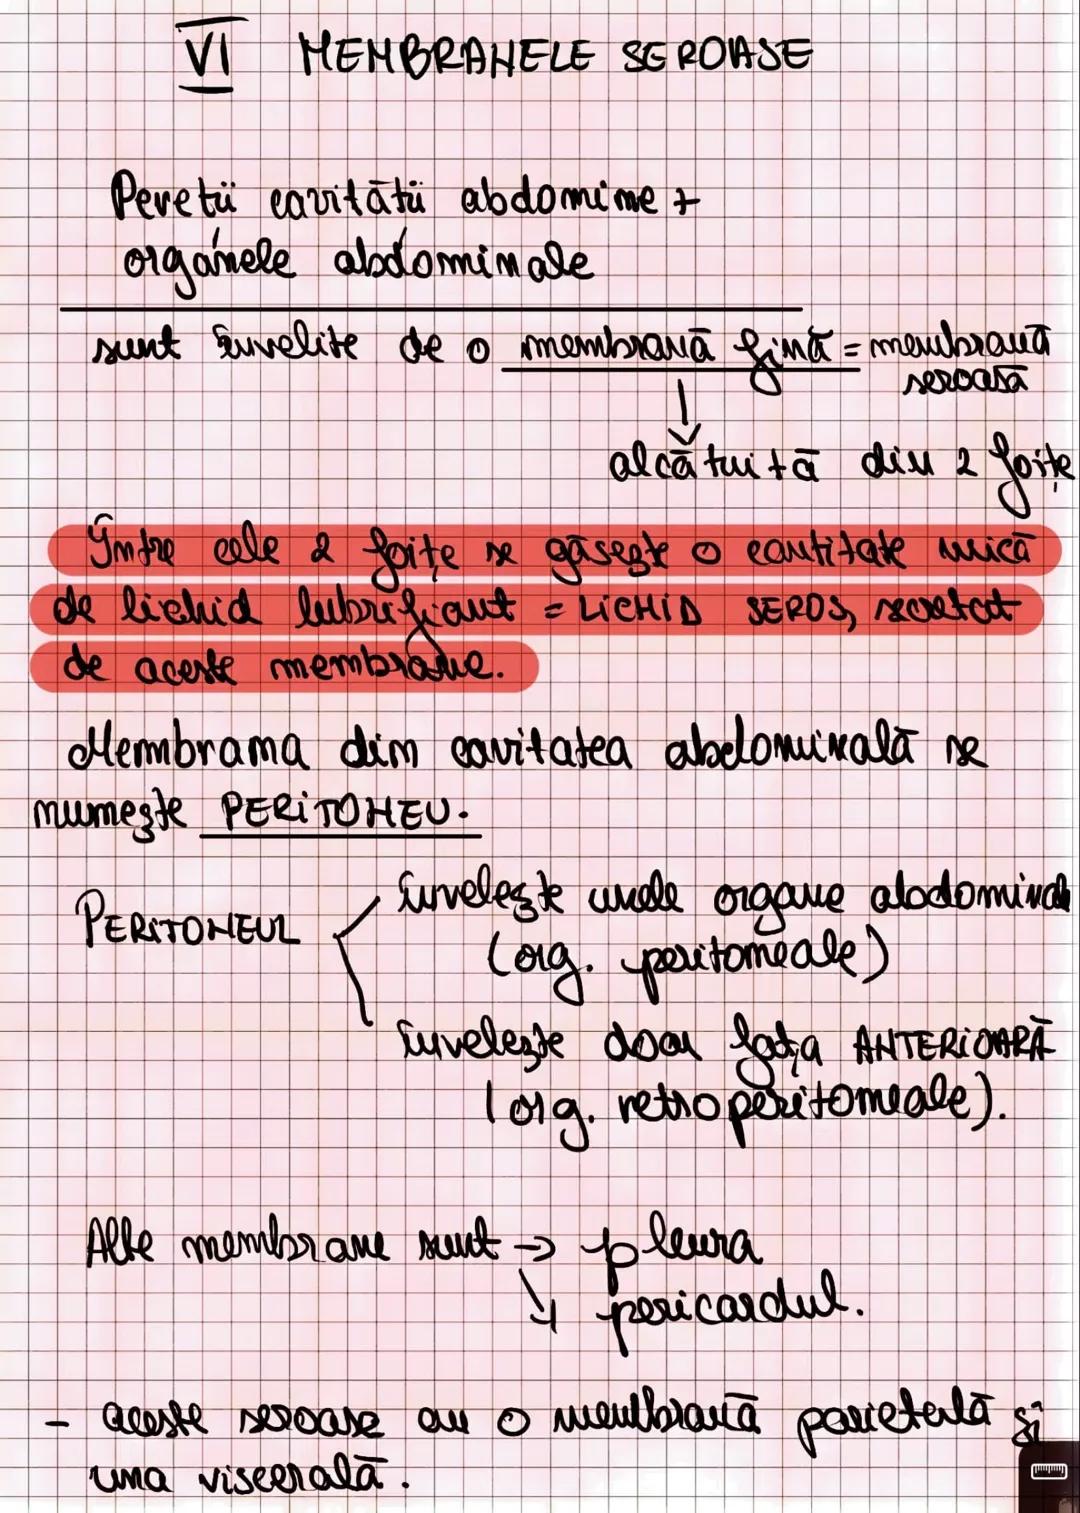 VI MEMBRANELE SEROASE
Pereții cavității abdomine +
organele abdominale
sunt învelite de o membrană fină = membrană
seroasă
alcătuită din 2 foițe
Între cele 2 foițe se găsește o cantitate mică
de lichid lubrifiant = LICHID SEROS, secretat
de aceste membrane.
Membrana din cavitatea abdominală se
numește PERITONEU.
PERITONEUL
învelește unele organe abdominale
(org. peritoneale)
învelește doar fața ANTERIOARĂ
(org. retroperitoneale).
Alte membrane sunt → pleura
↘ pericardul.
- aceste seroase au o membrană parietală și
una viscerală.